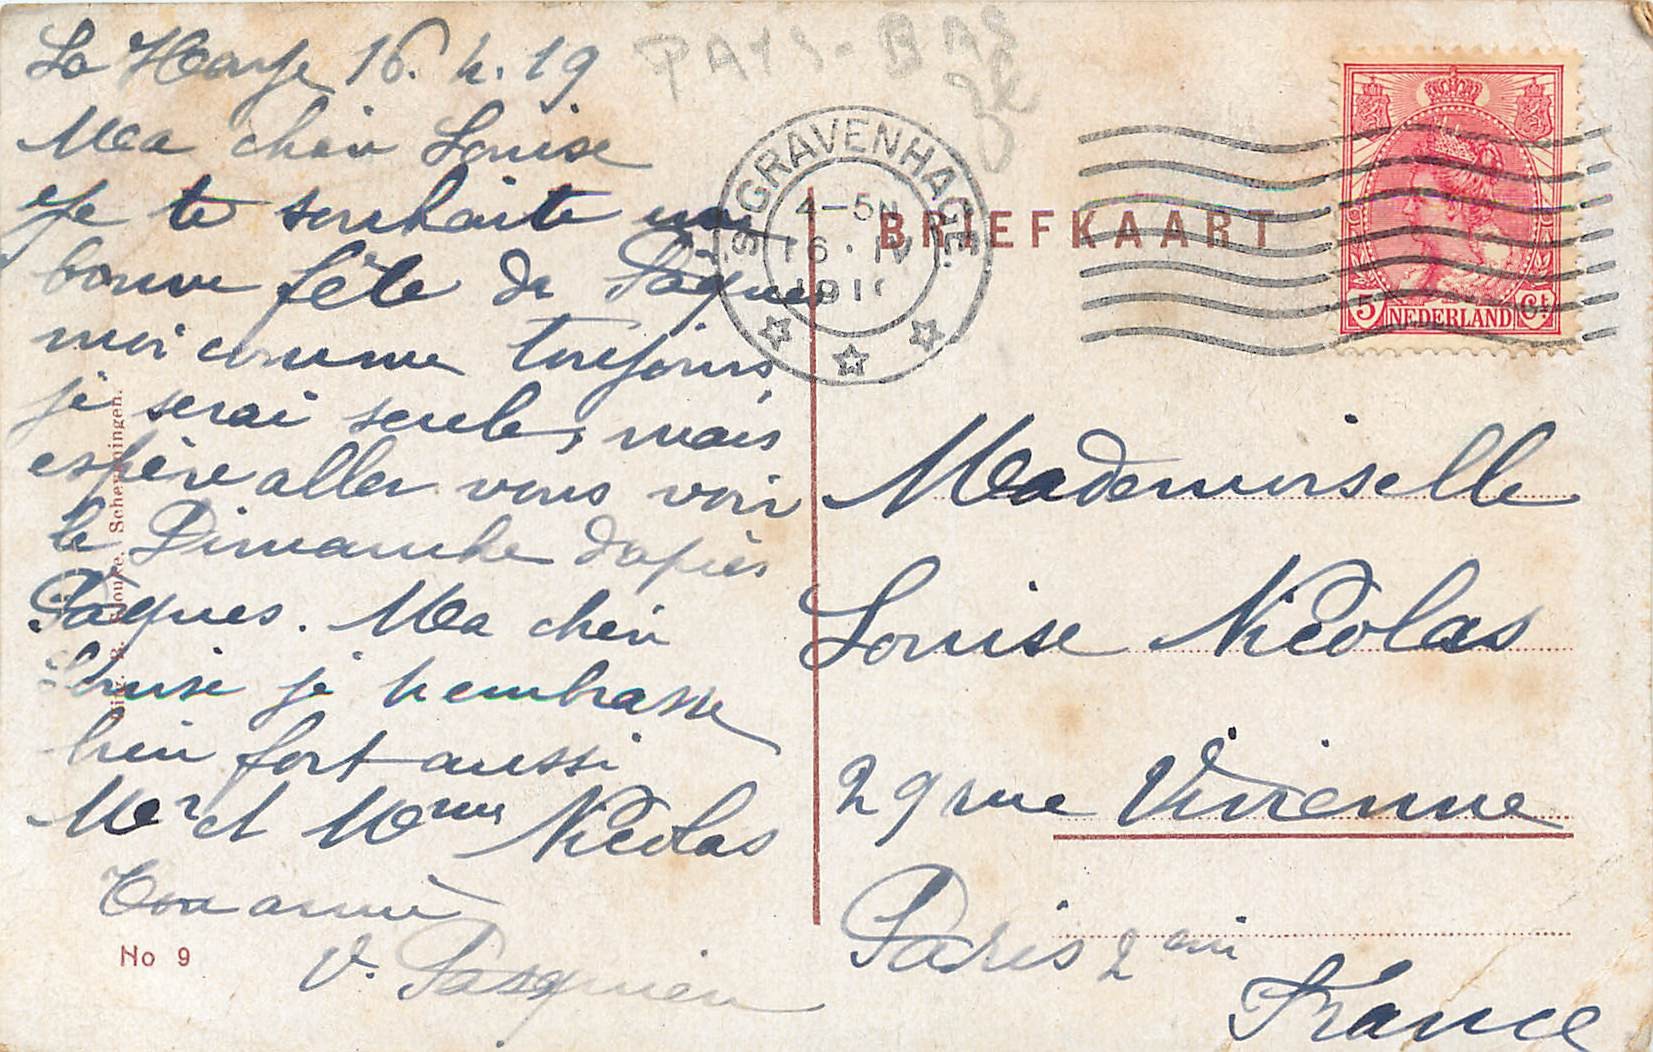 La Haye 16. 4. 19
Ma chère Louise
Je te souhaite une
bonne fête de Pâques
moi comme toujours
je serai seule, mais
espère aller vous voir
le Dimanche d'après
Pâques. Ma chère
Louise je t'embrasse
bien fort aussi
Mr et Mme Nicolas
Ton amie
V. Pasquier
No 9
Scheveningen.
PAYS-BAS
'S GRAVENHAGE.
4-5N
16·IV
191
BRIEFKAART
5 NEDERLAND Ct
Mademoiselle
Louise Nicolas
29 rue Vivienne
Paris 2em
France